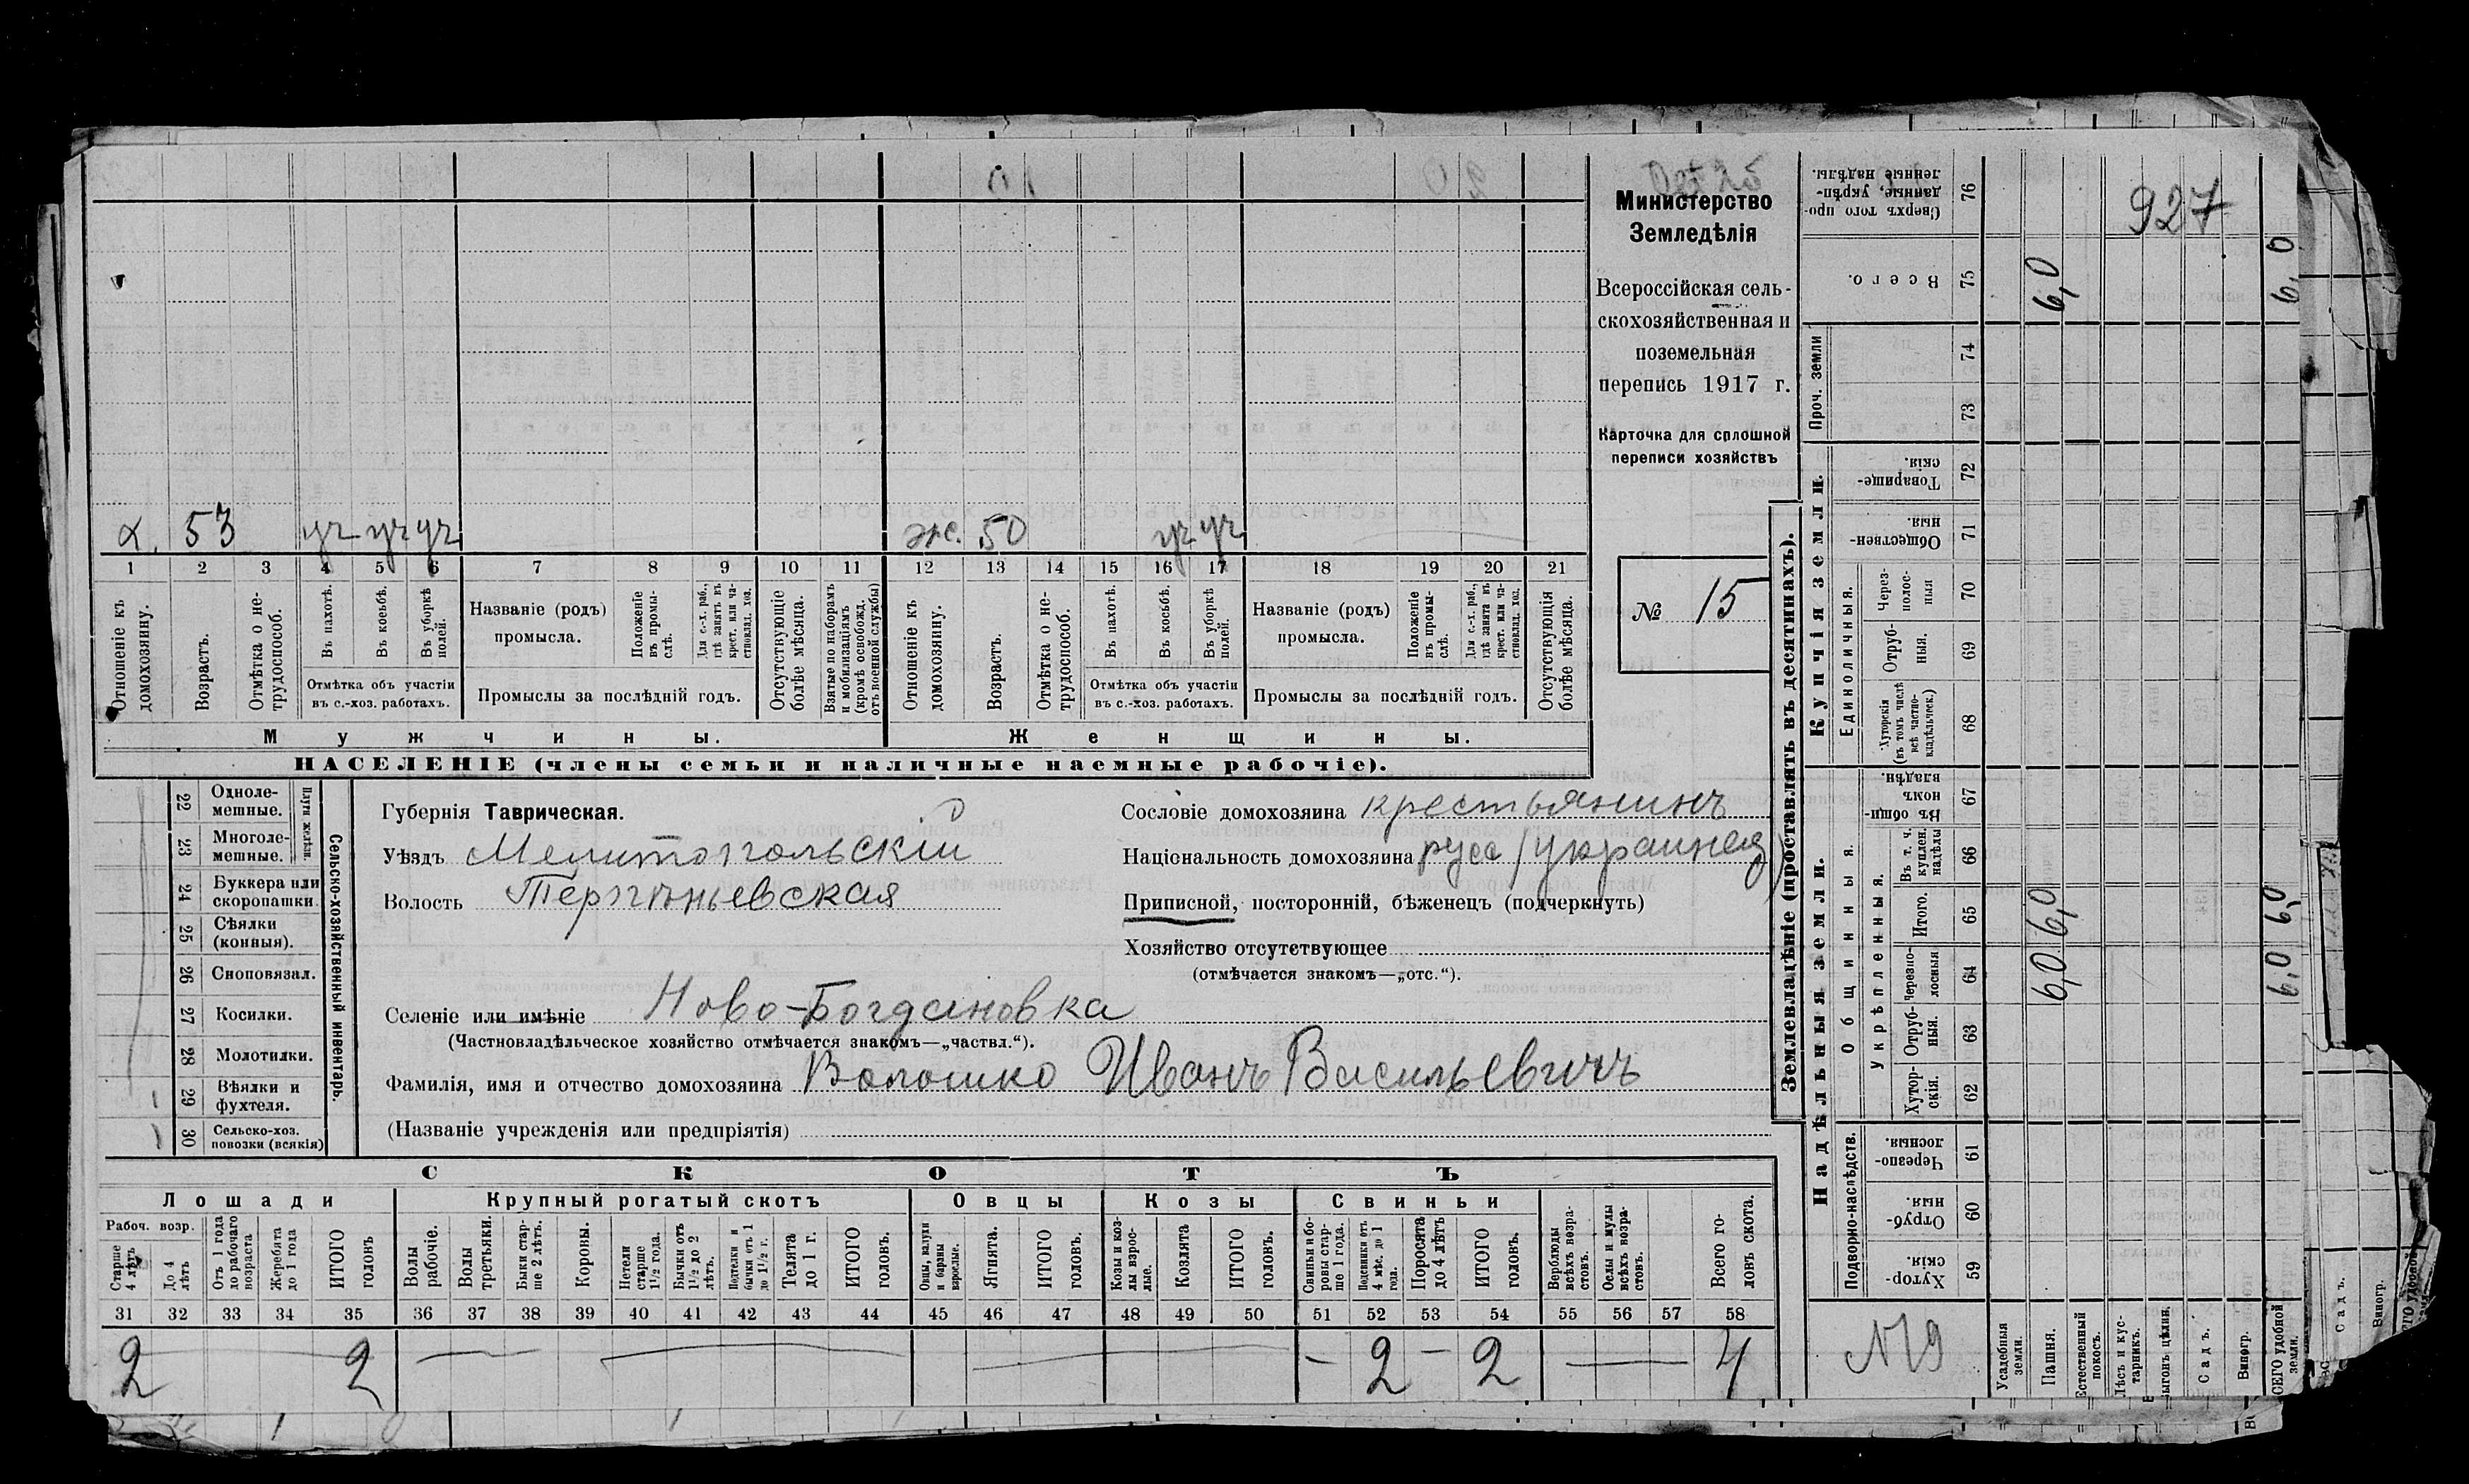 α. 53 уч уч уч ж. 50 уч уч
1 2 3 4 5 6 7 8 9 10 11 12 13 14 15 16 17 18 19 20 21
Отношеніе къ домохозяину.
Возрастъ.
Отмѣтка о не-
трудоспособ.
Въ пахотѣ.
Въ косьбѣ.
Въ уборкѣ полей.
Отмѣтка объ участіи
въ с.-хоз. работахъ.
Названіе (родъ)
промысла.
Положеніе въ промы-
слѣ.
Для с.-х. раб., гдѣ занятъ въ крест. или ча-
стновлад. хоз.
Промыслы за послѣдній годъ.
Отсутствующіе болѣе мѣсяца.
Взятые по наборамъ и мобилизаціямъ (кромѣ освобожд. отъ военной службы)
Отношеніе къ домохозяину.
Возрастъ.
Отмѣтка о не-
трудоспособ.
Въ пахотѣ.
Въ косьбѣ.
Въ уборкѣ полей.
Отмѣтка объ участіи
въ с.-хоз. работахъ.
Названіе (родъ)
промысла.
Положеніе въ промы-
слѣ.
Для с.-х. раб., гдѣ занята въ крест. или ча-
стновлад. хоз.
Промыслы за послѣдній годъ.
Отсутствующія болѣе мѣсяца.
Мужчины.
Женщины.
НАСЕЛЕНІЕ (члены семьи и наличные наемные рабочіе).
Министерство
Земледѣлія
Всероссійская сель-
скохозяйственная и
поземельная
перепись 1917 г.
Карточка для сплошной
переписи хозяйствъ
№ 15
22 Одноле-
мешные.
23 Многоле-
мешные.
Плуги желѣзн.
24 Буккера или
скоропашки.
25 Сѣялки
(конныя).
26 Сноповязал.
27 Косилки.
28 Молотилки.
29 Вѣялки и
фухтеля.
30 Сельско-хоз.
повозки (всякія)
Сельско-хозяйственный инвентарь.
Губернія Таврическая.
Уѣздъ Мелитопольскій
Волость Терпѣньевская
Сословіе домохозяина крестьянинъ
Національность домохозяина русс (украинец)
Приписной, посторонній, бѣженецъ (подчеркнуть)
Хозяйство отсутствующее
(отмѣчается знакомъ—„отс.“).
Селеніе или имѣніе Ново-Богдановка
(Частновладѣльческое хозяйство отмѣчается знакомъ—„частвл.“).
Фамилія, имя и отчество домохозяина Волошко Иванъ Васильевичъ
(Названіе учрежденія или предпріятія)
СКОТЪ
Лошади
Крупный рогатый скотъ
Овцы
Козы
Свиньи
Рабоч. возр.
Старше 4 лѣтъ
До 4 лѣтъ
Отъ 1 года до рабочаго возраста
Жеребята до 1 года
ИТОГО головъ
Волы рабочіе.
Волы третьяки.
Быки стар-
ше 2 лѣтъ.
Коровы.
Нетели старше 1½ года.
Бычки отъ 1½ до 2 лѣтъ.
Подтелки и бычки отъ 1 до 1½ г.
Телята до 1 г.
ИТОГО головъ.
Овцы, валухи и бараны взрослые.
Ягнята.
ИТОГО головъ.
Козы и коз-
лы взрос-
лые.
Козлята
ИТОГО головъ.
Свиньи и бо-
ровы стар-
ше 1 года.
Подсвинки отъ 4 мѣс. до 1 года.
Поросята до 4 лѣтъ
ИТОГО головъ.
Верблюды всѣхъ возра-
стовъ.
Ослы и мулы всѣхъ возра-
стовъ.
Всего го-
ловъ скота.
31 32 33 34 35 36 37 38 39 40 41 42 43 44 45 46 47 48 49 50 51 52 53 54 55 56 57 58
2 2 — — — — 2 — 2 — 4
Землевладѣніе (проставлять въ десятинахъ).
Купчія земли.
Надѣльныя земли.
Сверхъ того про-
данные, укрѣп-
ленные надѣлы. 76
Всего. 75 6,0 6,0
927
Проч. земли 74 73
Товарище-
скія. 72
Обществен-
ныя. 71
Единоличныя.
Через-
полос-
ныя 70
Отруб-
ныя. 69
Хуторскія (въ томъ числѣ всѣ частно-
владѣльческ.) 68
Общинныя.
Въ общин-
номъ владѣн. 67
Укрѣпленныя.
Въ т. ч. куплен. надѣлы 66
Итого. 65 6,0 6,0
Черезпо-
лосныя 64 6,0 6,0
Отруб-
ныя. 63
Хутор-
скія. 62
Подворно-наслѣдств.
Черезпо-
лосныя. 61
Отруб-
ныя. 60
Хутор-
скія 59
№ 9
Усадебныя земли.
Пашня.
Естественный покосъ.
Лѣсъ и кус-
тарникъ.
Выгонъ цѣлин.
Садъ.
Виногр.
ВСЕГО удобной земли.
Садъ.
Виногр.